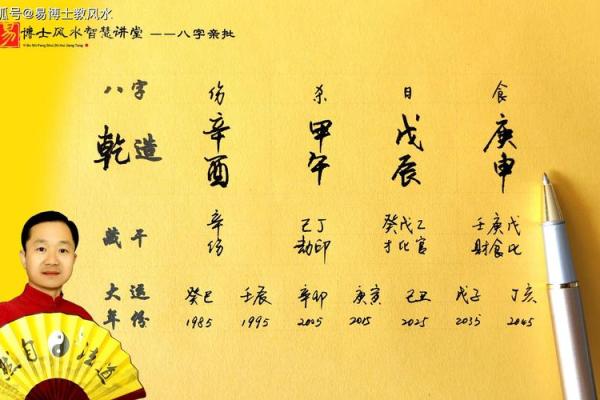 狐号@易博士教风水
易博士风水智慧讲堂 ——八字亲批
Yi Bo Shi Feng Shui Zhi Hui Jiang Tang
八字 伤 杀 日 食
乾造 辛酉 甲午 戊辰 庚申
藏干 辛 己丁 癸戊乙 壬庚戊
伤 劫印 才比官 财食比
大运 癸巳 壬辰 辛卯 庚寅 己丑 戊子 丁亥
年份 1985 1995 2005 2015 2025 2035 2045
然自 法道